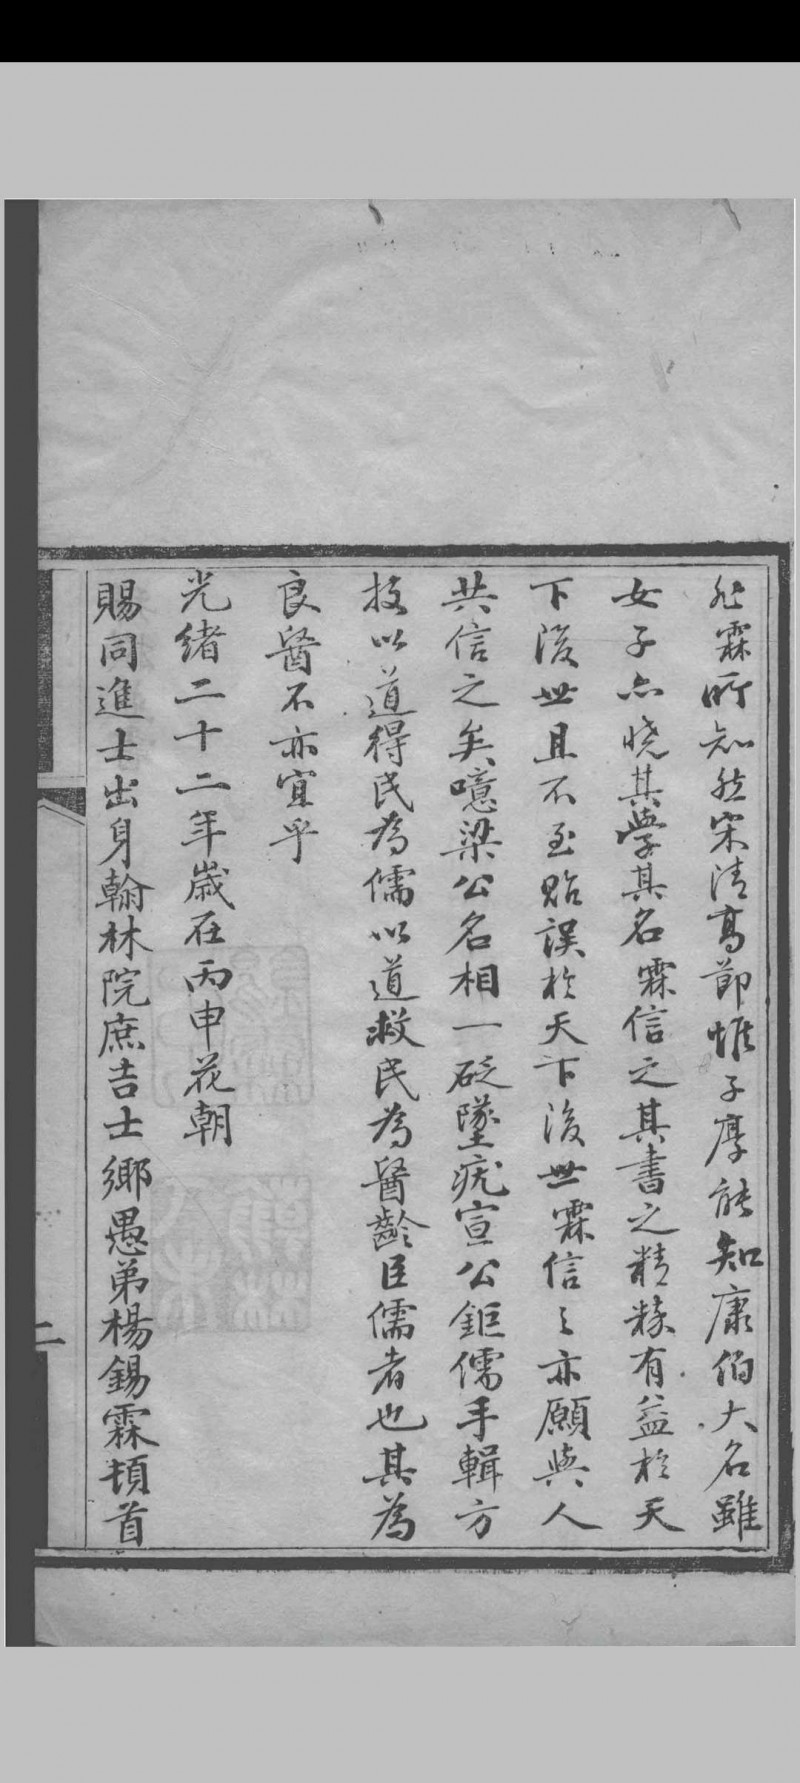 非霖所知然宋清高節惟子厚能知康伯大名雖
女子亦曉其學其名霖信之其書之精核有益於天
下後世且不至貽誤於天下後世霖信之亦願與人
共信之矣噫梁公名相一砭墜疣宣公鉅儒手輯方
技以道得民為儒以道救民為醫齡臣儒者也其為
良醫不亦宜乎
光緒二十二年歲在丙申花朝
賜同進士出身翰林院庶吉士鄉愚弟楊錫霖頓首
二